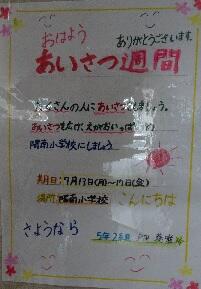 おはよう
ありがとうございます。
あいさつ週間
たくさんの人にあいさつをしましょう。
あいさつを広げ、えがおいっぱいの
陽南小学校にしましょう
期日: 9月13日(月)~17日(金)
場所: 陽南小学校
こんにちは
さようなら
5年2組